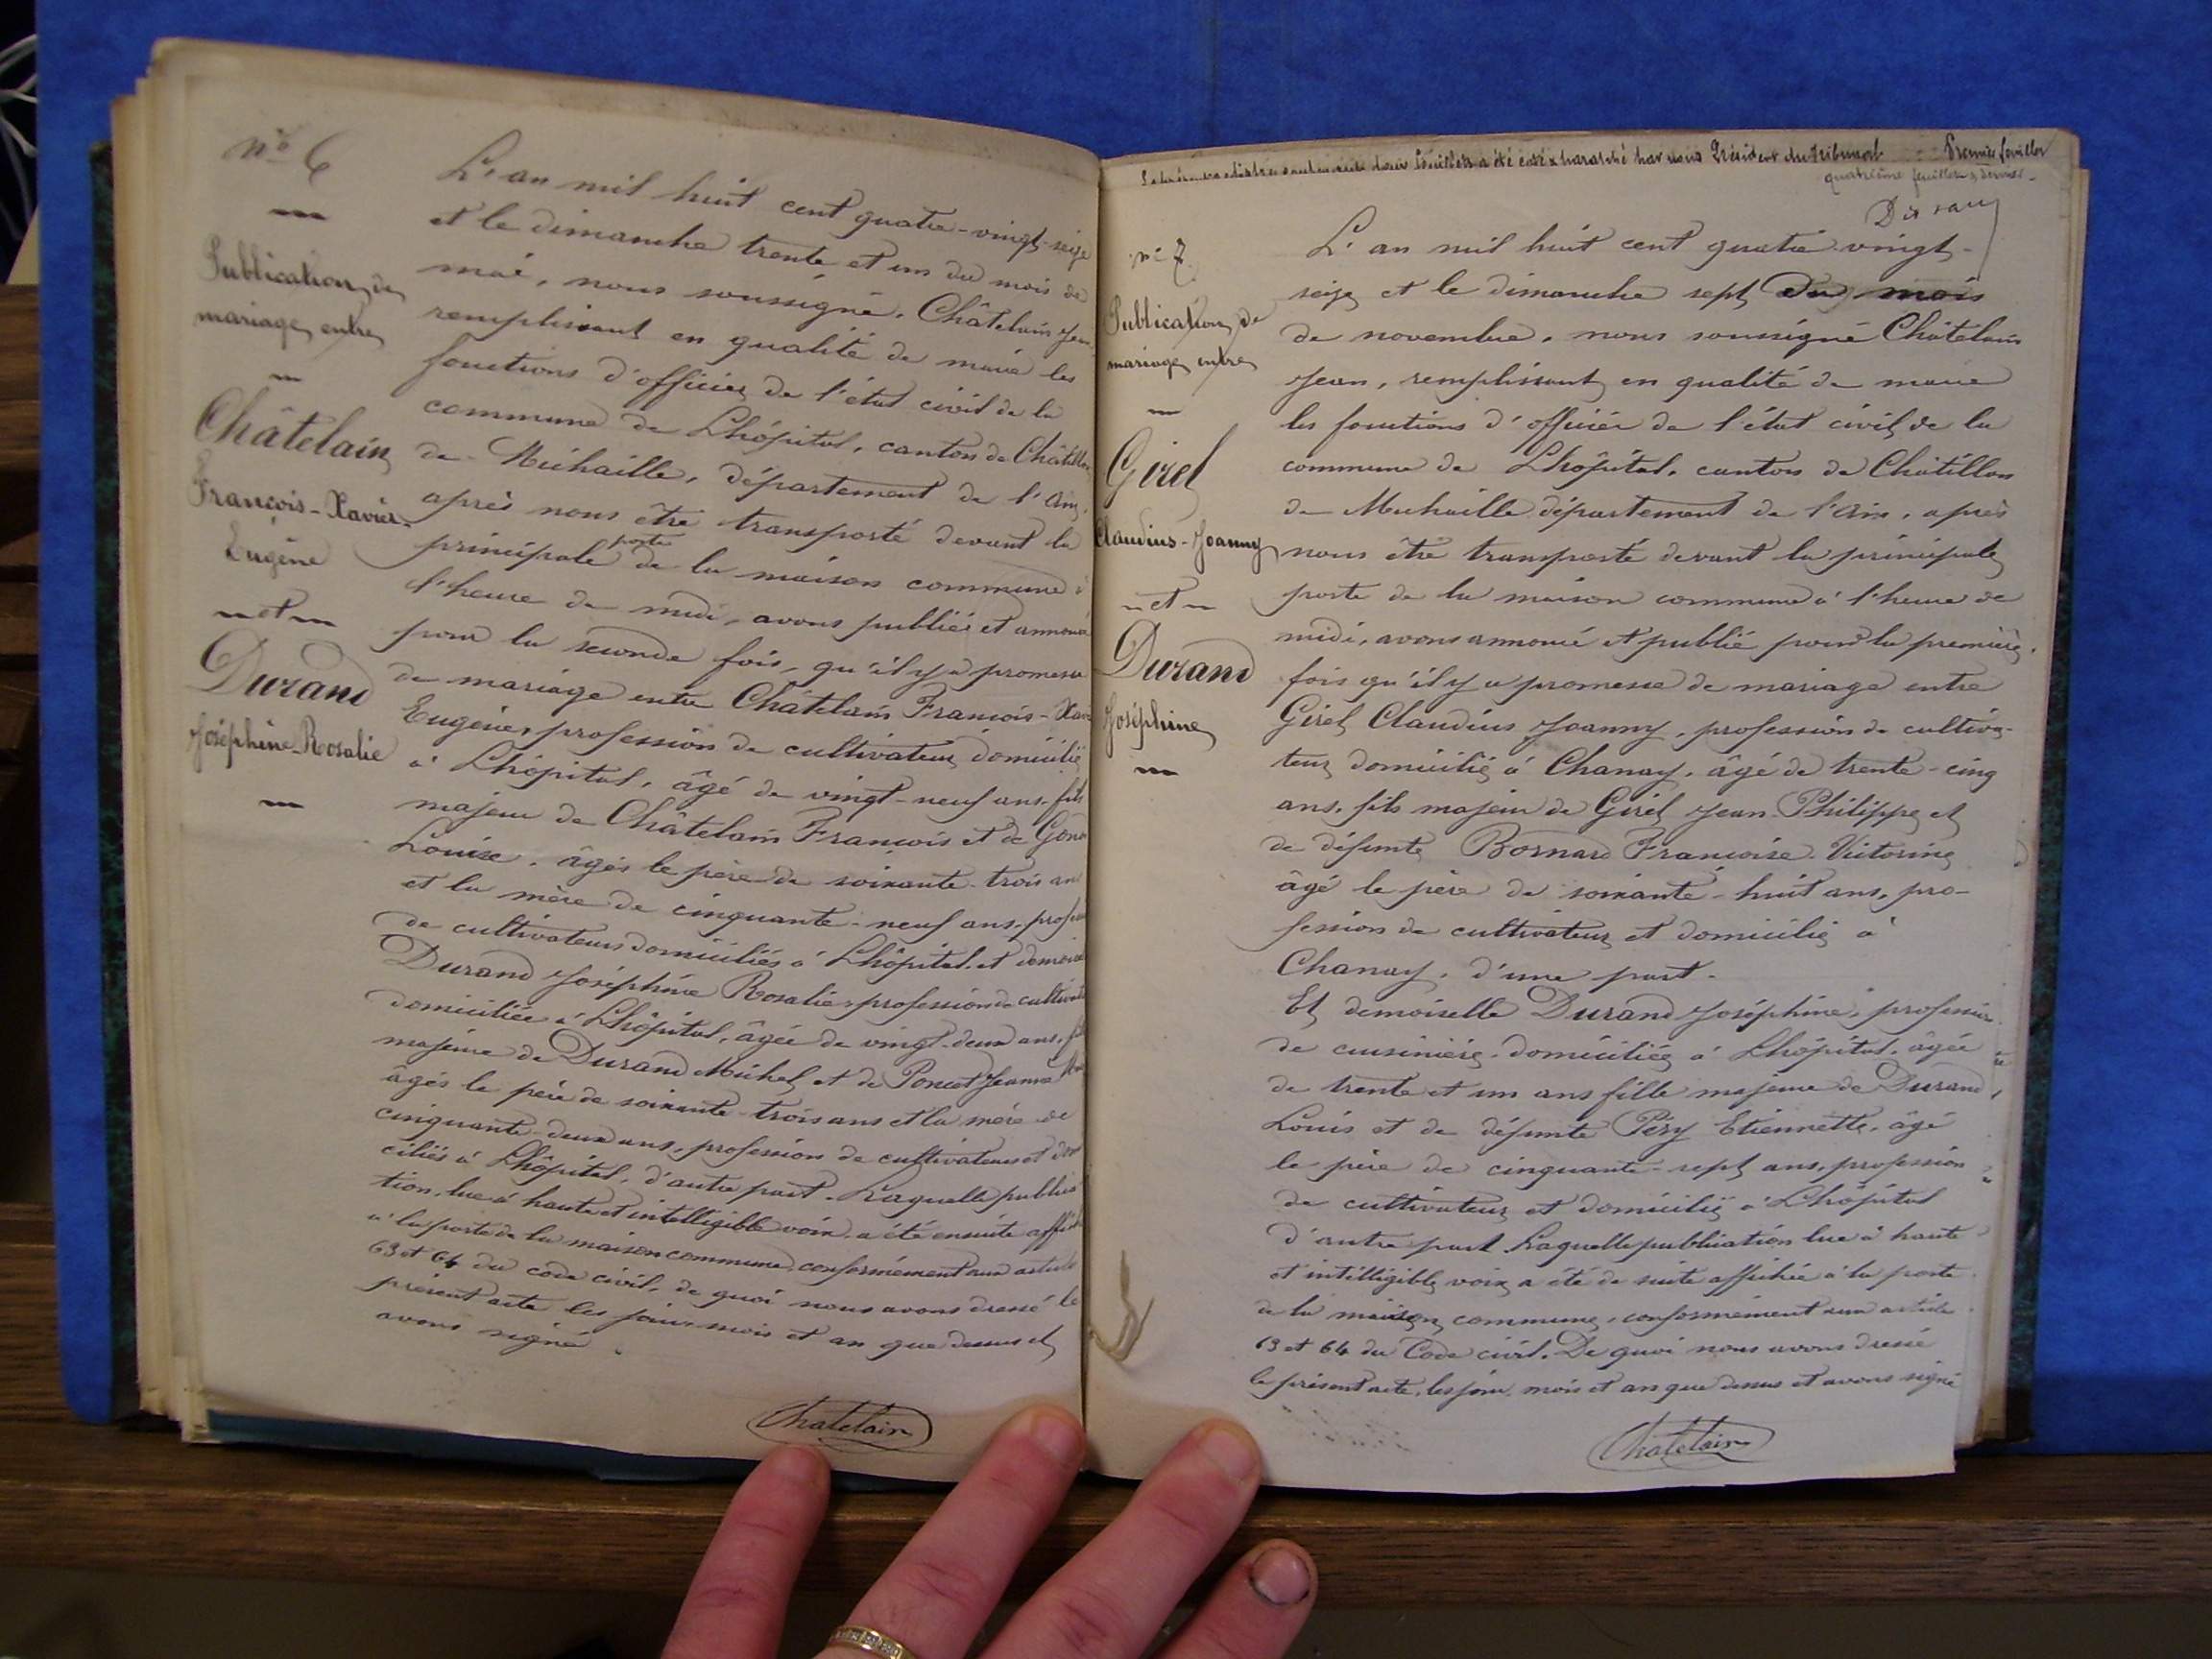 nº 6
Publication de
mariage entre
Châtelain
François-Xavier-
Eugène
et
Durand
Joséphine-Rosalie
L'an mil huit cent quatre-vingt-seize
et le dimanche trente et un du mois de
mai, nous soussigné, Châtelain Jean
remplissant en qualité de maire les
fonctions d'officier de l'état civil de la
commune de Lhôpital, canton de Châtillon
de Michaille, département de l'Ain,
après nous être transporté devant la
principale porte de la maison commune à
l'heure de midi, avons publié et annoncé
pour la seconde fois, qu'il y a promesse
de mariage entre Châtelain François-Xavier
Eugène, profession de cultivateur, domicilié
à Lhôpital, âgé de vingt-neuf ans, fils
majeur de Châtelain François et de
Louise, âgés le père de soixante-trois ans
et la mère de cinquante-neuf ans, profession
de cultivateurs domiciliés à Lhôpital. et demoiselle
Durand Joséphine Rosalie, profession de
domiciliée à Lhôpital, âgée de vingt-deux ans,
majeure de Durand Michel et de Poncet Jeanne
âgés le père de soixante-trois ans et la mère de
cinquante-deux ans, profession de cultivateurs et domi
ciliés à Lhôpital, d'autre part. Laquelle publica
tion, lue à haute et intelligible voix a été ensuite affichée
à la porte de la maison commune, conformément aux articles
63 et 64 du code civil, de quoi nous avons dressé le
présent acte les jour, mois et an que dessus et
avons signé.
Chatelain
été coté & paraphé par nous Président du Tribunal Premier feuillet
quatrième feuillet & dernier
nº 7
Publication de
mariage entre
Girel
Claudius-Joanny
et
Durand
Joséphine
L'an mil huit cent quatre-vingt-
seize et le dimanche sept du mois
de novembre, nous soussigné Châtelain
Jean, remplissant en qualité de maire
les fonctions d'officier de l'état civil de la
commune de Lhôpital, canton de Châtillon
de Michaille département de l'Ain, après
nous être transporté devant la principale
porte de la maison commune à l'heure de
midi, avons annoncé et publié pour la première
fois qu'il y a promesse de mariage entre
Girel Claudius Joanny, profession de cultiva-
teur domicilié à Chanay, âgé de trente-cinq
ans, fils majeur de Girel Jean-Philippe et
de défunte Bornard Françoise-Victorine
âgé le père de soixante-huit ans, pro-
fession de cultivateur et domicilié à
Chanay, d'une part.
Et demoiselle Durand Joséphine, profession
de cuisinière domiciliée à Lhôpital, âgée
de trente et un ans fille majeure de Durand
Louis et de défunte Péry Etiennette, âgé
le père de cinquante-sept ans, profession
de cultivateur et domicilié à Lhôpital
d'autre part. Laquelle publication lue à haute
et intelligible voix a été de suite affichée à la porte
de la maison commune, conformément aux articles
63 et 64 du Code civil. De quoi nous avons dressé
le présent acte, les jour, mois et an que dessus et avons signé
Chatelain